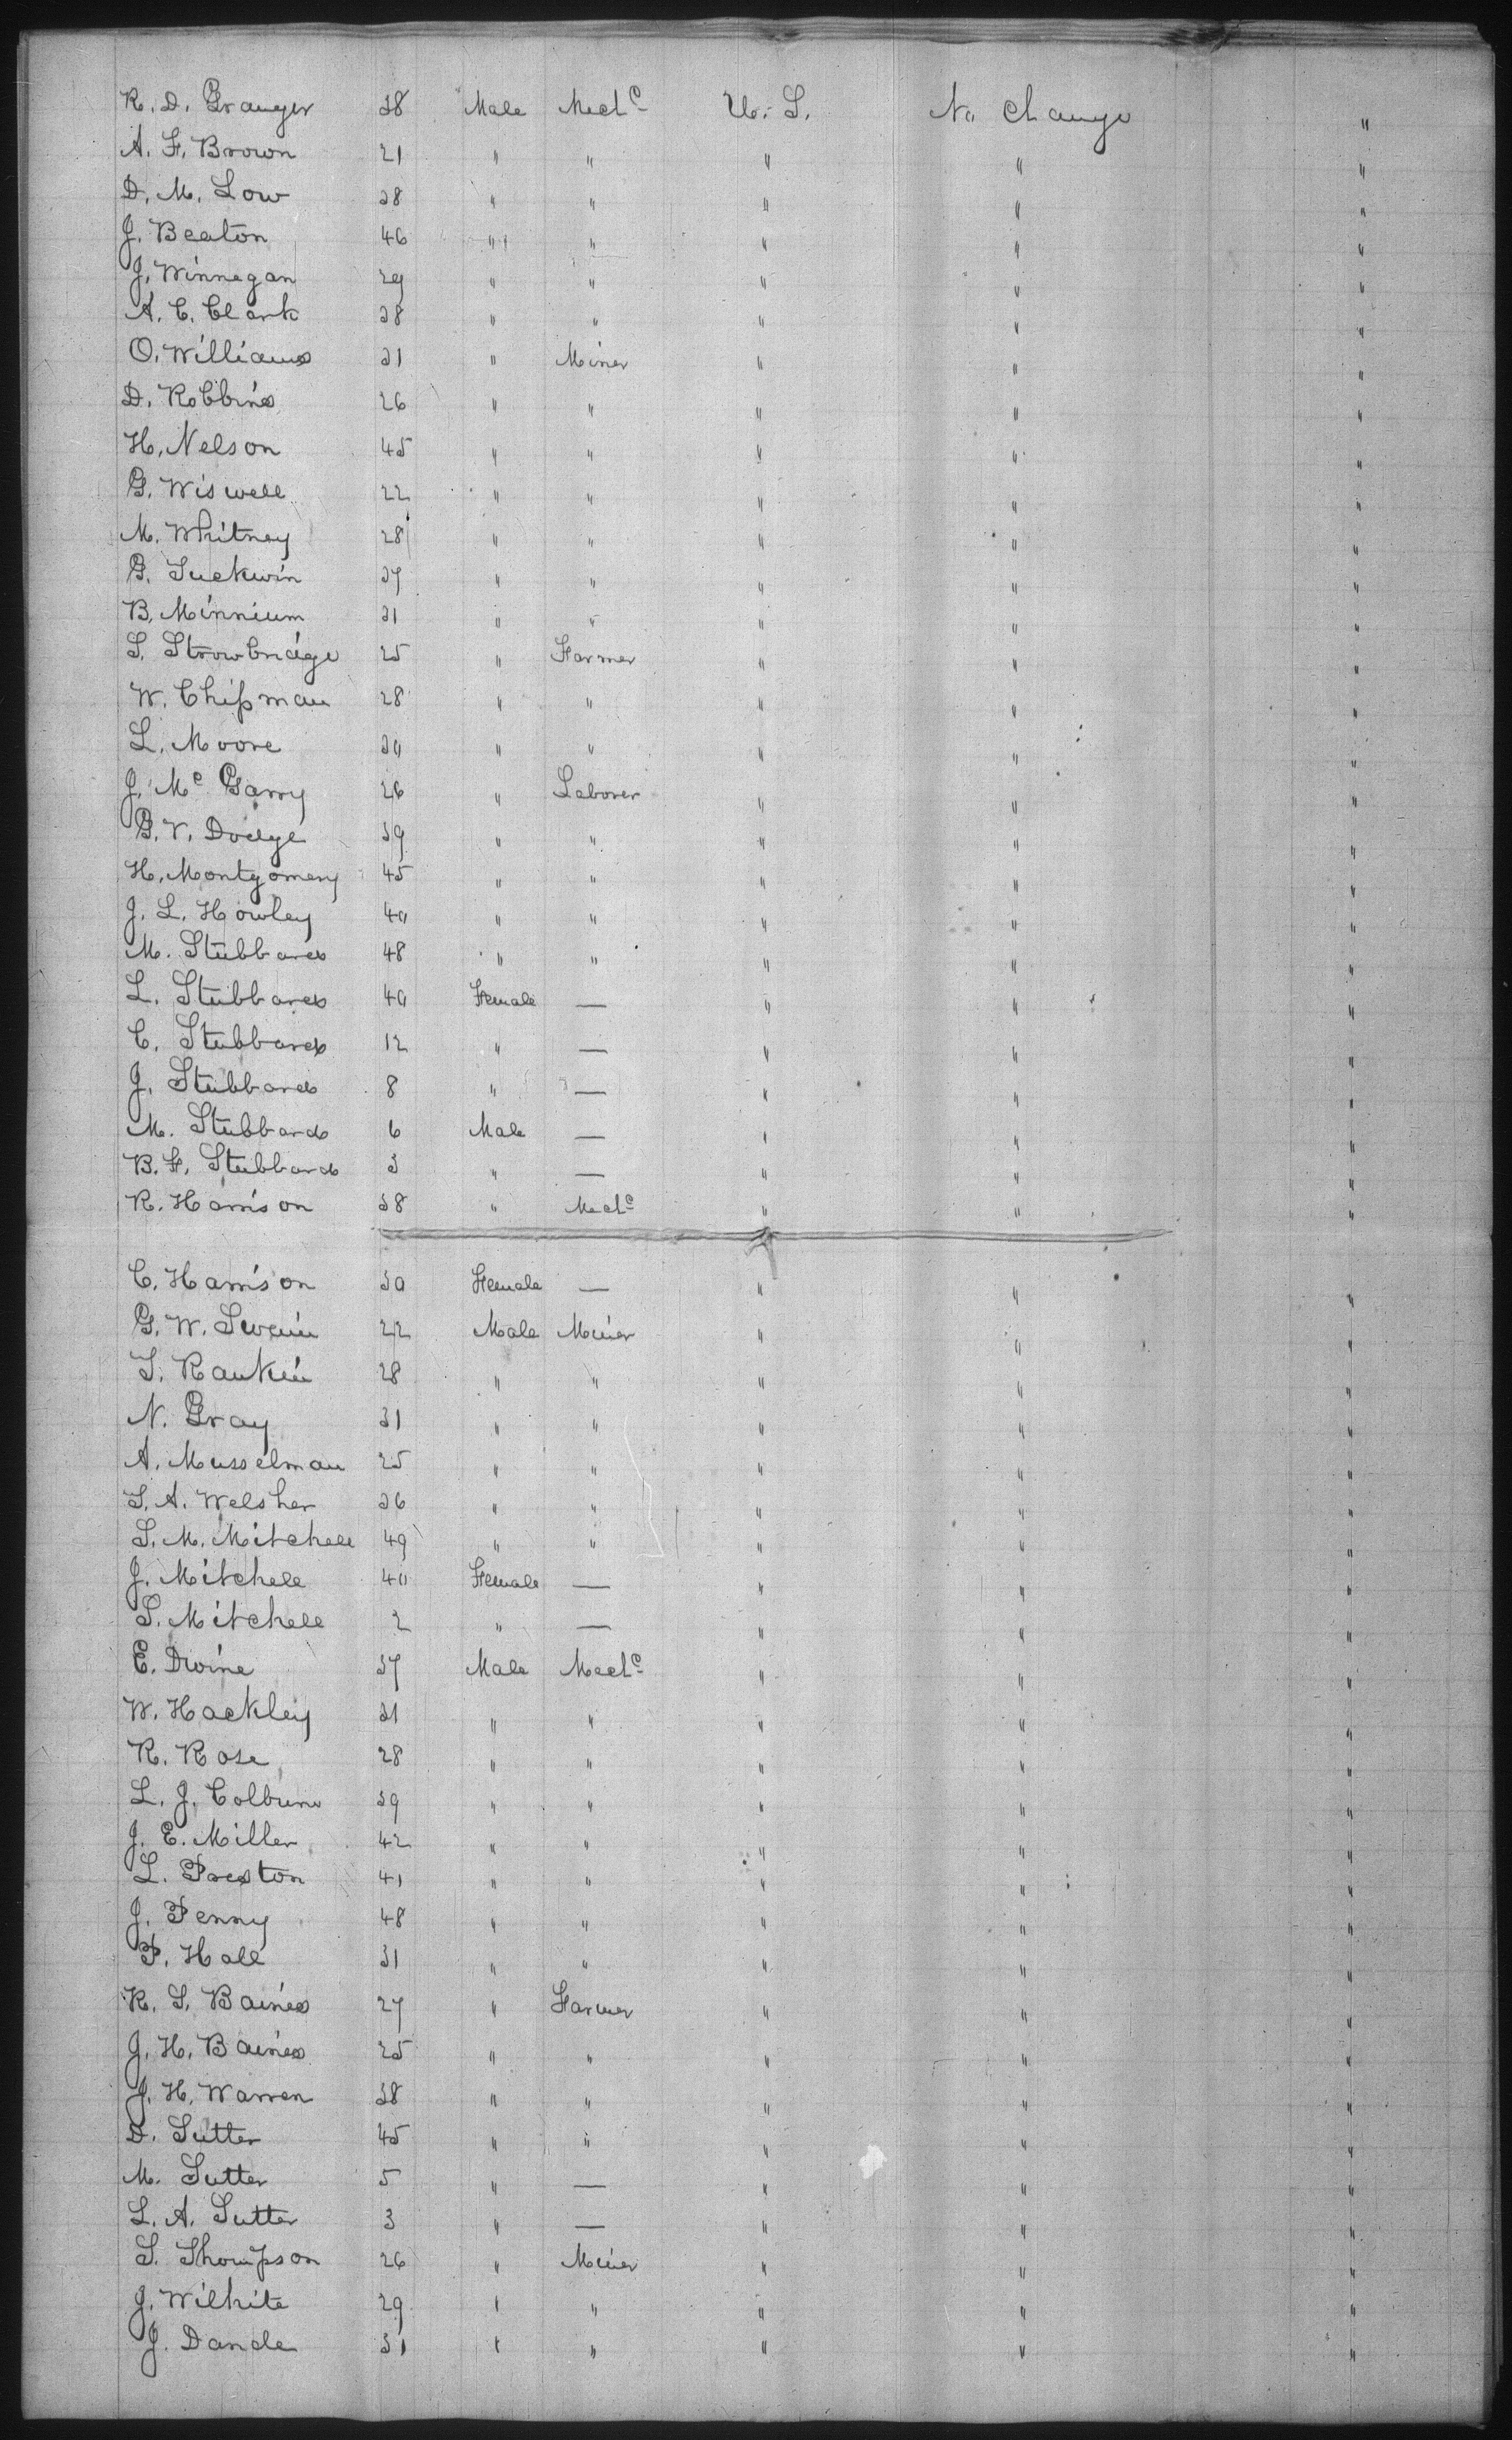 R. D. Granger 38 Male Mech<sup>c</sup> U. S. No change "
A. F. Brown 21 " " " " "
D. M. Low 28 " " " " "
J. Beaton 46 " " " " "
J. Winnegan 29 " " " " "
A. C. Clark 38 " " " " "
O. Williams 31 " Miner " " "
D. Robbins 26 " " " " "
H. Nelson 45 " " " " "
G. Wiswell 22 " " " " "
M. Whitney 28 " " " " "
G. Luckwin 37 " " " " "
B. Minnium 31 " " " " "
S. Strowbridge 25 " Farmer " " "
W. Chipman 28 " " " " "
L. Moore 30 " " " " "
J. M<sup>c</sup> Garry 26 " Laborer " " "
G. V. Dodge 39 " " " " "
H. Montgomery 45 " " " " "
J. L. Howley 40 " " " " "
M. Stubbards 48 " " " " "
L. Stubbards 40 Female — " " "
C. Stubbards 12 " — " " "
J. Stubbards 8 " — " " "
M. Stubbards 6 Male — " " "
B. F. Stubbards 3 " — " " "
R. Harrison 38 " Mech<sup>c</sup> " " "
C. Harrison 30 Female — " " "
G. W. Swain 22 Male Miner " " "
T. Rankin 28 " " " " "
N. Gray 31 " " " " "
A. Musselman 25 " " " " "
S. A. Welsher 36 " " " " "
S. M. Mitchell 49 " " " " "
J. Mitchell 40 Female — " " "
S. Mitchell 2 " — " " "
E. Divine 37 Male Mech<sup>c</sup> " " "
W. Hackley 31 " " " " "
R. Rose 28 " " " " "
L. J. Colburn 39 " " " " "
J. E. Miller 42 " " " " "
L. Preston 41 " " " " "
J. Penny 48 " " " " "
P. Hall 31 " " " " "
R. S. Baines 27 " Farmer " " "
J. H. Baines 25 " " " " "
J. H. Warren 38 " " " " "
D. Sutter 45 " " " " "
M. Sutter 5 " — " " "
L. A. Sutter 3 " — " " "
S. Thompson 26 " Miner " " "
J. Wilhite 29 " " " " "
J. Dande 31 " " " " "